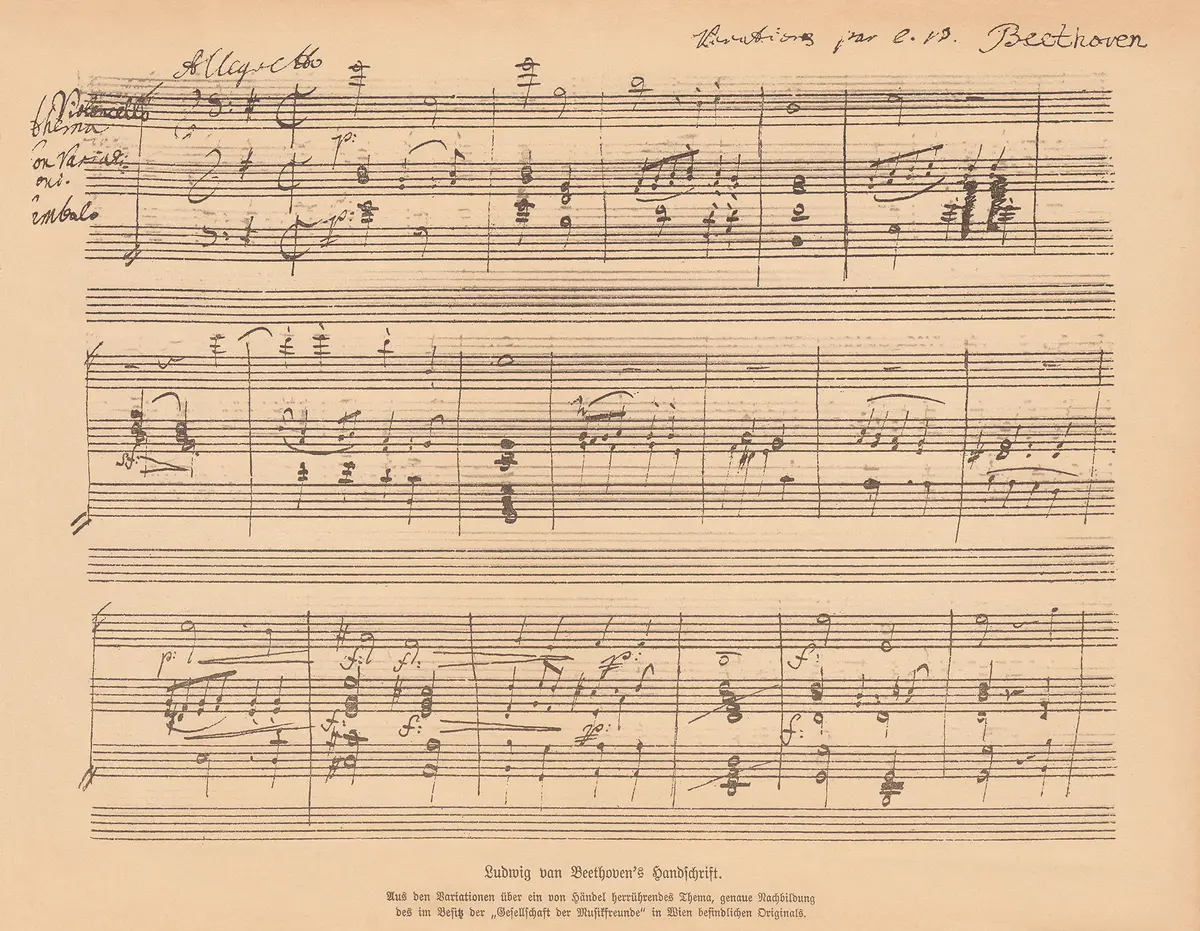 Variations par L. v. Beethoven
Allegretto
Violoncello
thema
on Variati-
oni.
imbalo
p:
p:
sf:
p:
f:
f:
p:
f:
f:
p:
f:
f:
Ludwig van Beethoven's Handschrift.
Aus den Variationen über ein von Händel herrührendes Thema, genaue Nachbildung
des im Besitz der „Gesellschaft der Musikfreunde“ in Wien befindlichen Originals.